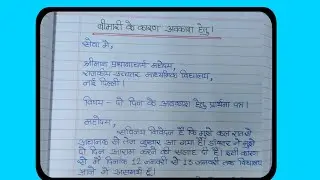 बीमारी के कारण अवकाश हेतु।
सेवा में,
श्रीमान प्रधानाचार्य महोदय,
राजकीय उच्चतर माध्यमिक विद्यालय,
नई दिल्ली।
विषय - दो दिन के अवकाश हेतु प्रार्थना पत्र।
महोदय,
सविनय निवेदन है कि मुझे कल रात से
अचानक से तेज बुखार आ गया है। डॉक्टर ने मुझे
दो दिन आराम करने की सलाह दी है। इसी कारण
से मैं दिनांक 12 जनवरी से 13 जनवरी तक विद्यालय
आने में असमर्थ हूँ।